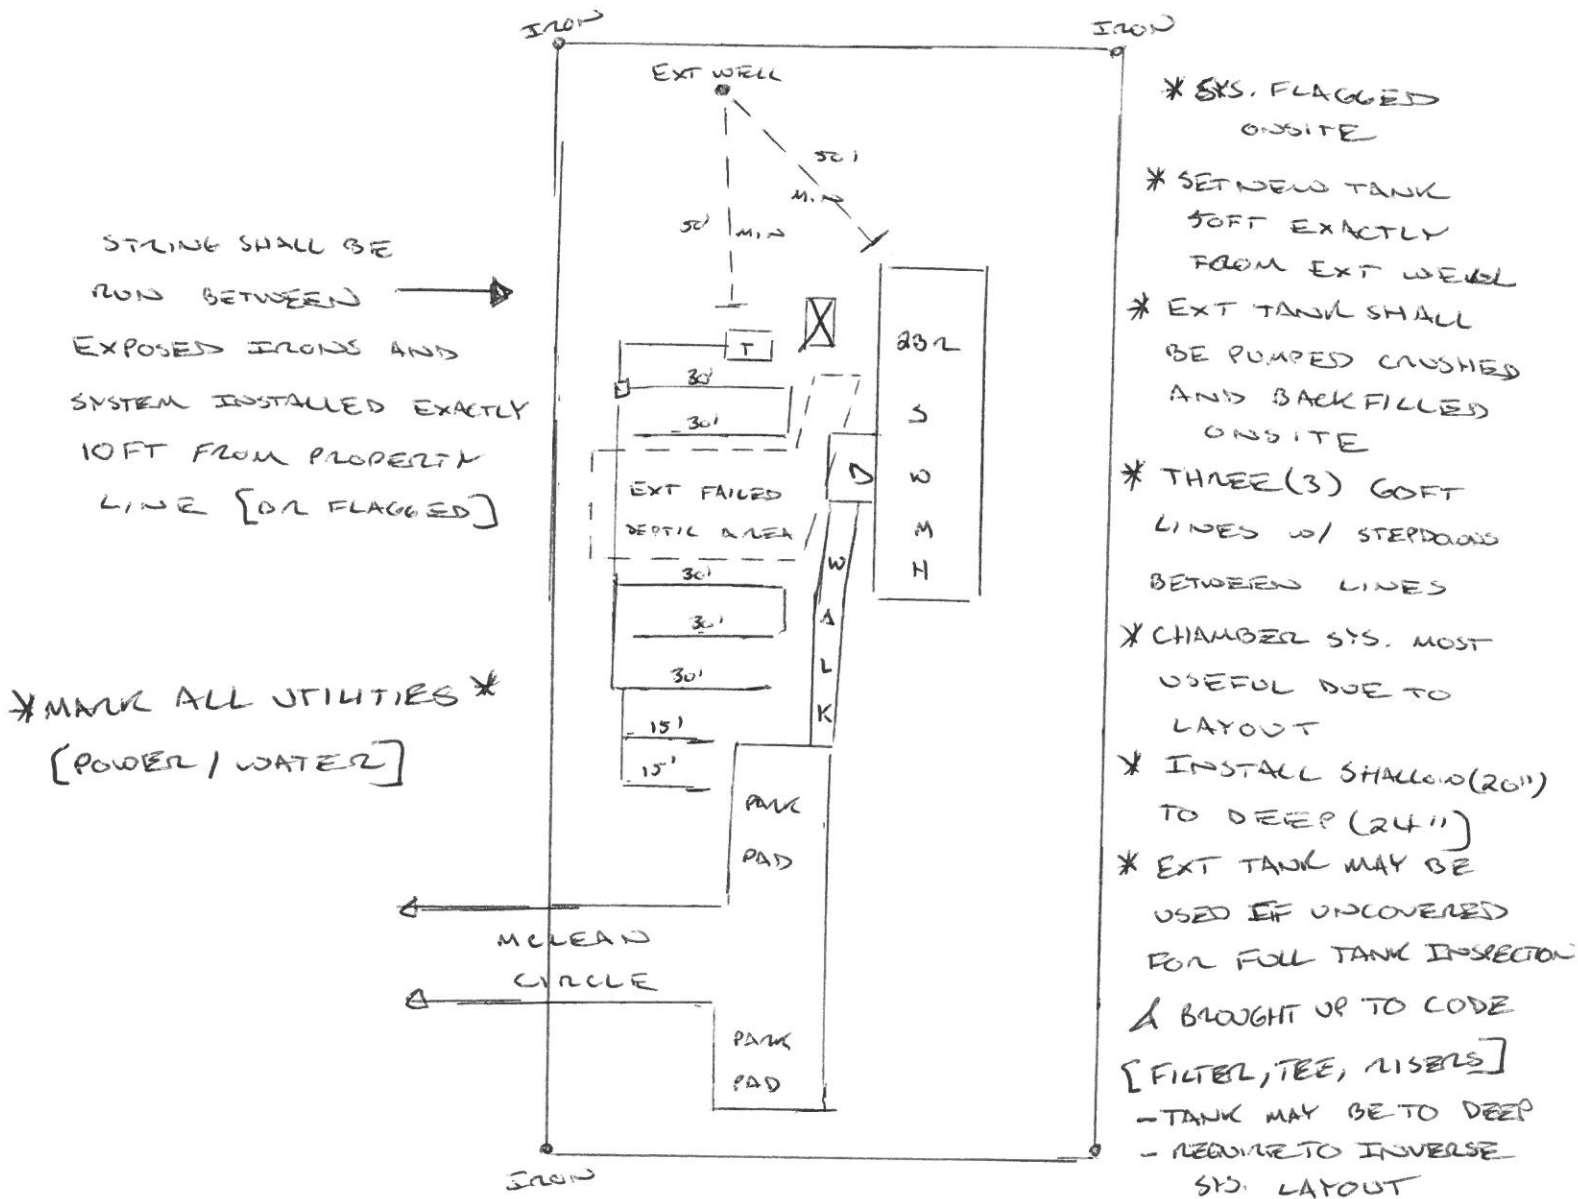 IRON
IRON
EXT WELL
50' MIN
50' MIN
STRING SHALL BE
RUN BETWEEN
EXPOSED IRONS AND
SYSTEM INSTALLED EXACTLY
10FT FROM PROPERTY
LINE [OR FLAGGED]
*MARK ALL UTILITIES*
[POWER / WATER]
T
30'
30'
EXT FAILED
SEPTIC AREA
30'
30'
30'
15'
15'
2BR
S
W
M
H
D
W
A
L
K
PARK
PAD
MCLEAN
CIRCLE
PARK
PAD
IRON
* SYS. FLAGGED
ONSITE
* SET NEW TANK
50FT EXACTLY
FROM EXT WELL
* EXT TANK SHALL
BE PUMPED CRUSHED
AND BACKFILLED
ONSITE
* THREE (3) 60FT
LINES W/ STEPDOWNS
BETWEEN LINES
* CHAMBER SYS. MOST
USEFUL DUE TO
LAYOUT
* INSTALL SHALLOW (20")
TO DEEP (24")
* EXT TANK MAY BE
USED IF UNCOVERED
FOR FULL TANK INSPECTION
& BROUGHT UP TO CODE
[FILTER, TEE, RISERS]
- TANK MAY BE TO DEEP
- REQUIRE TO INVERSE
SYS. LAYOUT